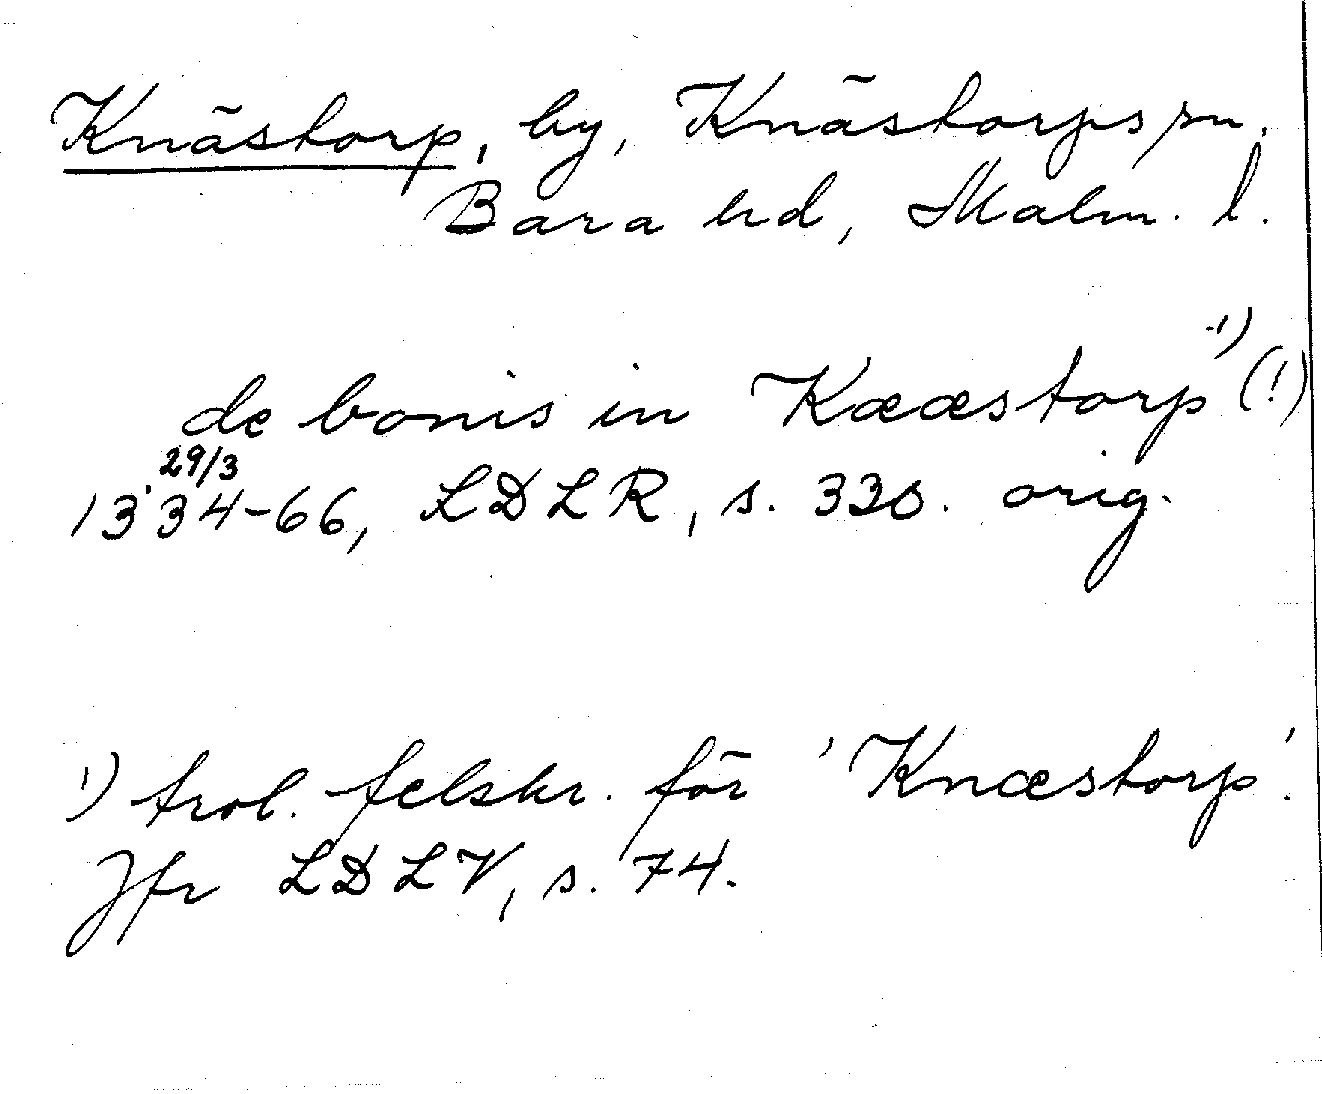 Knästorp, by, Knästorps sn.
Bara hd, Malm. l.
de bonis in Kææstorp ¹) (!)
29/3
1334-66, LDLR, s. 330. orig.
¹) trol. felskr. för 'Knæstorp'.
Jfr LDLV, s. 74.